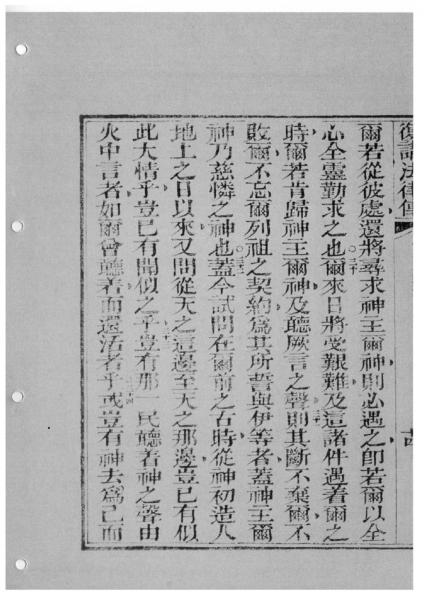 復講法律傳
爾若從彼處還將尋求神王爾神則必遇之即若爾以全
心全靈勤求之也爾來日將受艱難及這諸件遇着爾之
時爾若肯歸神王爾神及聽厥言之聲則其斷不棄爾不
敗爾不忘爾列祖之契約爲其所誓與伊等者蓋神王爾
神乃慈憐之神也蓋今試問在爾前之古時從神初造人
地上之日以來又問從天之這邊至天之那邊豈已有似
此大情乎豈已有聞似之乎豈有那一民聽着神之聲由
火中言者如爾曾聽着而還活者乎或豈有神去爲己而